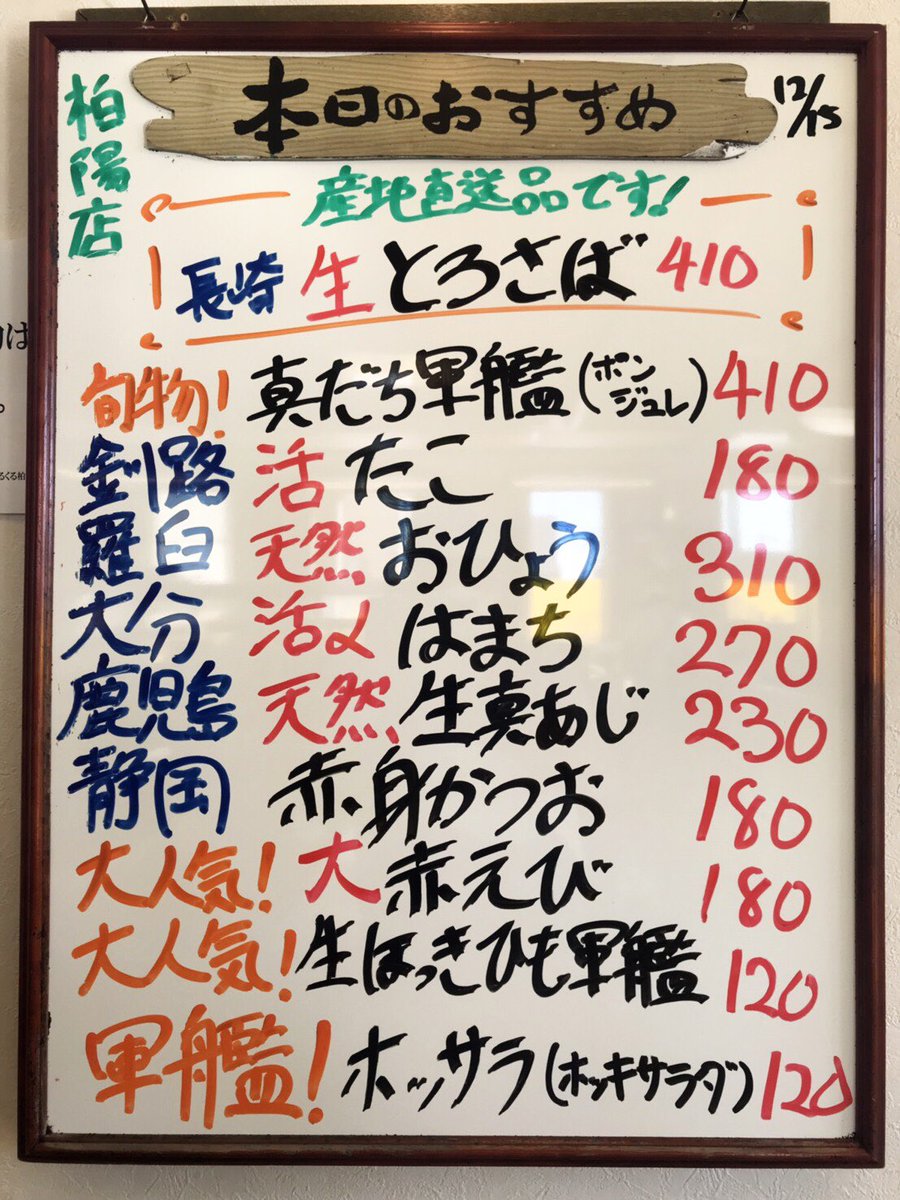 本日のおすすめ
12/15
柏陽店
産地直送品です!
長崎 生 とろさば 410
旬物! 真だち軍艦(ポンジュレ) 410
釧路 活 たこ 180
羅臼 天然 おひょう 310
大分 活〆 はまち 270
鹿児島 天然 生真あじ 230
静岡 赤身かつお 180
大人気! 大 赤えび 180
大人気! 生ほっきひも軍艦 120
軍艦! ホッサラ(ホッキサラダ) 120